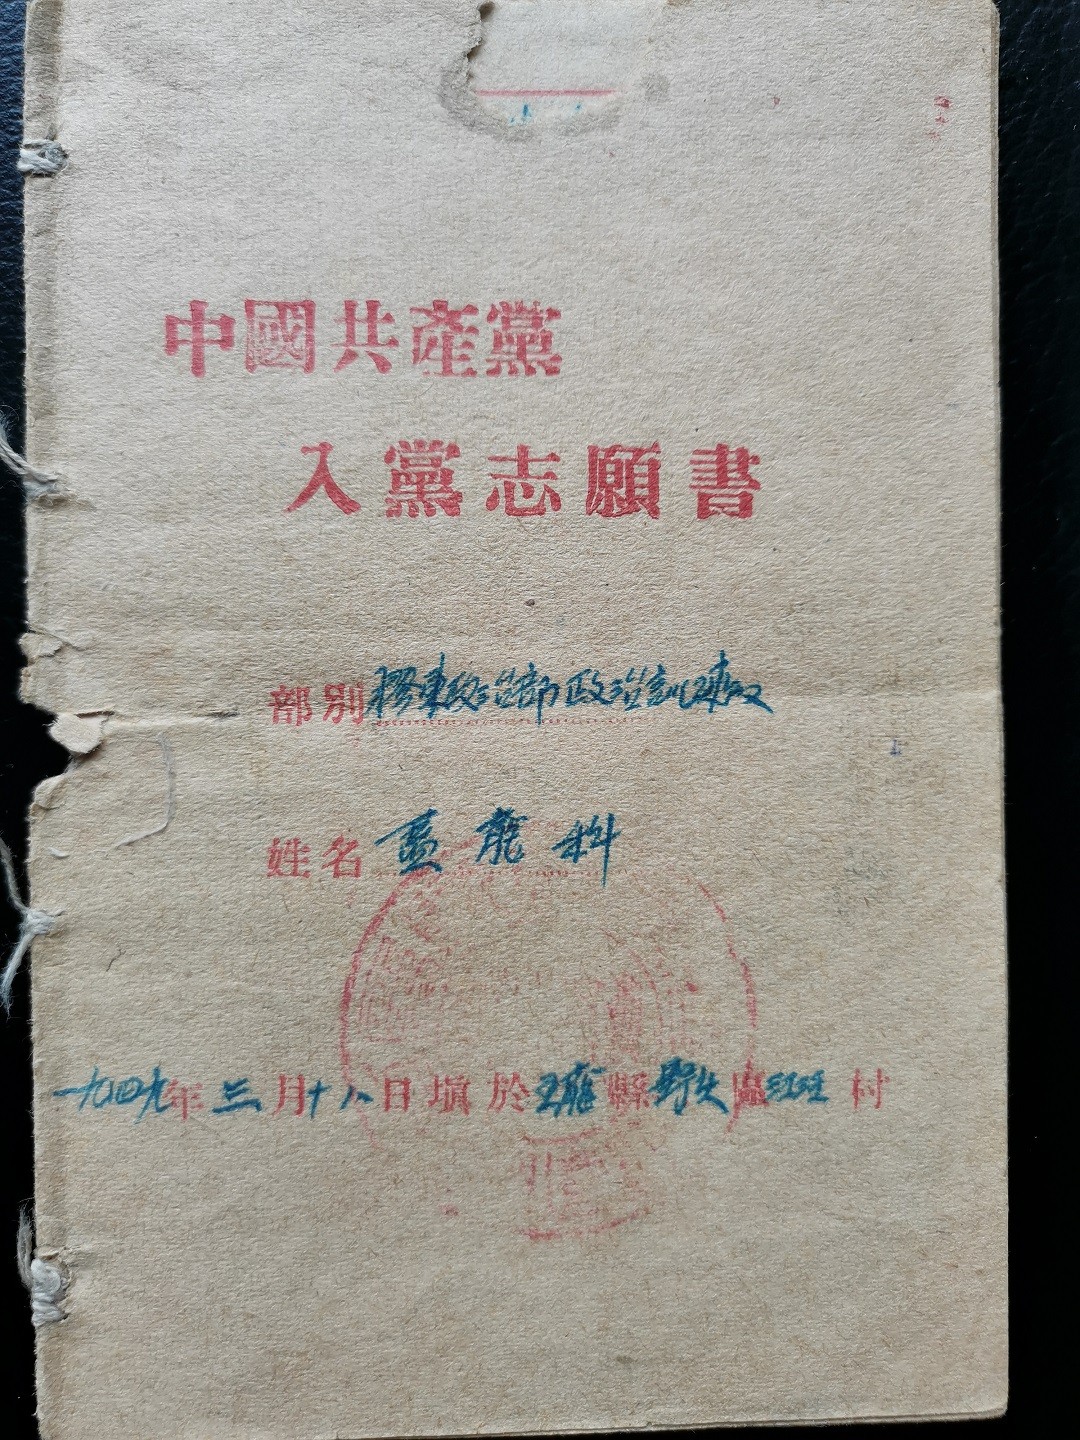 中國共產黨
入黨志願書
部別 膠東政治部政治訓練队
姓名 盖龍科
一九四九年三月十八日填於五龍縣野头區 村